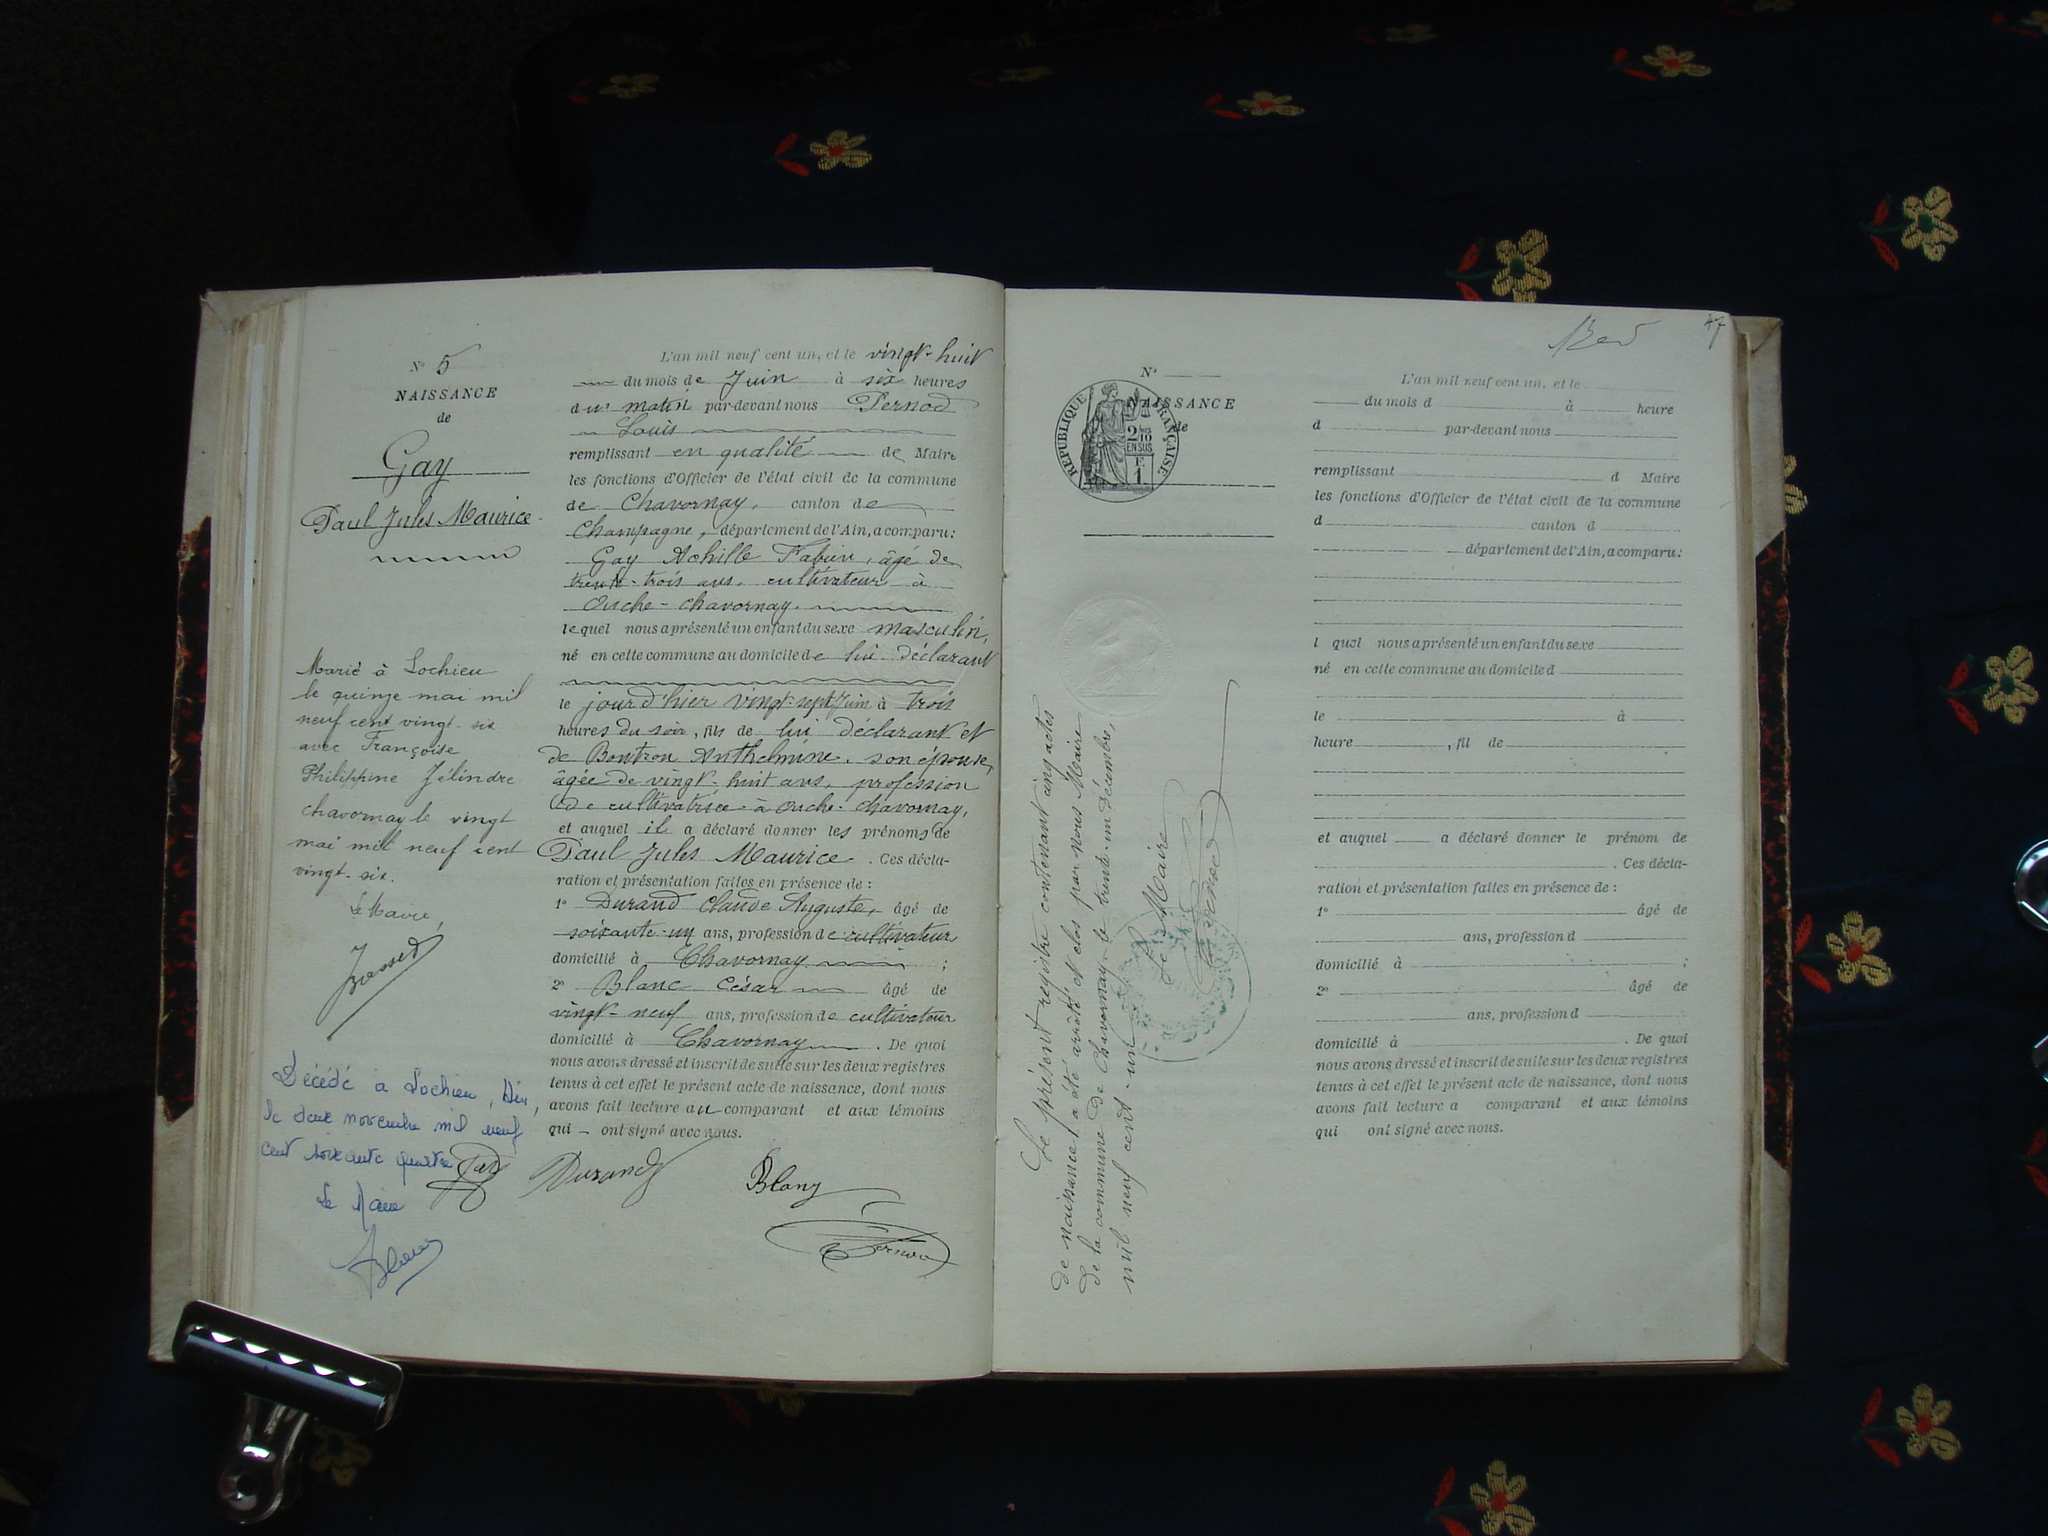 N° 5
NAISSANCE
de
Gay
Paul Jules Maurice
Marié à Lochieu
le quinze mai mil
neuf cent vingt-six
avec Françoise
Philippine Jélindre
Chavornay le vingt
mai mil neuf cent
vingt-six.
Le Maire,
Décédé à Lochieu, Ain,
le deux novembre mil neuf
cent soixante quatre
Le Maire
L'an mil neuf cent un, et le vingt-huit
du mois de Juin à six heures
du matin par-devant nous Pernod
Louis
remplissant en qualité de Maire
les fonctions d'Officier de l'état civil de la commune
de Chavornay, canton de
Champagne, département de l'Ain, a comparu:
Gay Achille Fabien, âgé de
trente-trois ans, cultivateur à
Ouche-Chavornay.
lequel nous a présenté un enfant du sexe masculin,
né en cette commune au domicile de lui déclarant
le jour d'hier vingt-sept Juin à trois
heures du soir, fils de lui déclarant et
de Bontron Anthelmine, son épouse,
âgée de vingt-huit ans, profession
de cultivatrice à Ouche-Chavornay,
et auquel il a déclaré donner les prénoms de
Paul Jules Maurice. Ces décla-
ration et présentation faites en présence de :
1° Durand Claude Auguste, âgé de
soixante-un ans, profession de cultivateur
domicilié à Chavornay ;
2° Blanc César âgé de
vingt-neuf ans, profession de cultivateur
domicilié à Chavornay. De quoi
nous avons dressé et inscrit de suite sur les deux registres
tenus à cet effet le présent acte de naissance, dont nous
avons fait lecture au comparant et aux témoins
qui ont signé avec nous.
Durand
Blanc
Pernod
47
N°
NAISSANCE
de
RÉPUBLIQUE FRANÇAISE
2/10
EN SUS
E
1
Le présent registre contenant cinq actes
de naissance, a été arrêté et clos par nous Maire
de la commune de Chavornay le trente-un Décembre,
mil neuf cent-un
Le Maire
Pernod
L'an mil neuf cent un, et le
du mois d à heure
d par-devant nous
remplissant d Maire
les fonctions d'Officier de l'état civil de la commune
d canton d
département de l'Ain, a comparu:
l quel nous a présenté un enfant du sexe
né en cette commune au domicile d
le à
heure , fil de
et auquel a déclaré donner le prénom de
. Ces décla-
ration et présentation faites en présence de :
1° âgé de
ans, profession d
domicilié à ;
2° âgé de
ans, profession d
domicilié à . De quoi
nous avons dressé et inscrit de suite sur les deux registres
tenus à cet effet le présent acte de naissance, dont nous
avons fait lecture a comparant et aux témoins
qui ont signé avec nous.